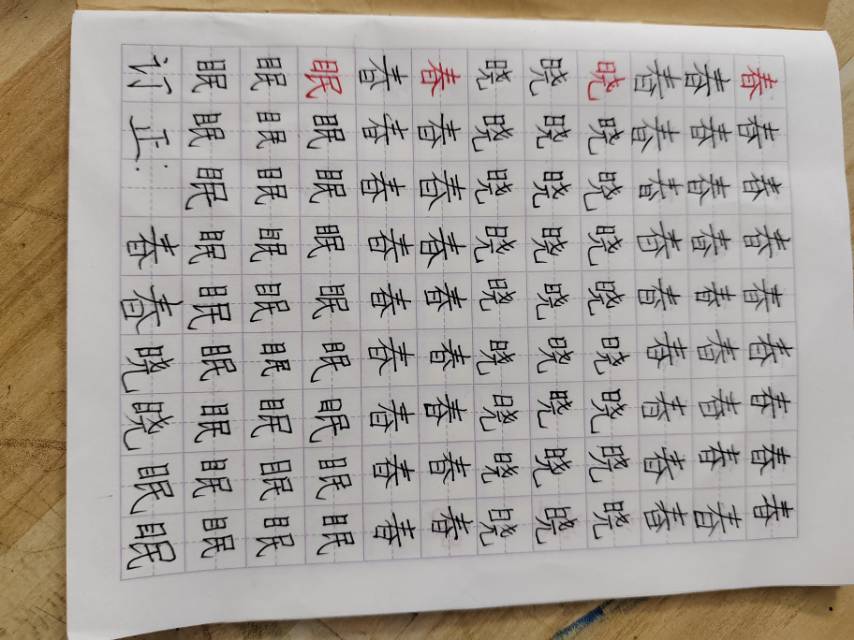 春春春春春春春春春
春春春春春春春春春
春春春春春春春春春
晓晓晓晓晓晓晓晓晓
晓晓晓晓晓晓晓晓晓
晓晓晓晓晓晓晓晓晓
春春春春春春春春春
春春春春春春春春春
眠眠眠眠眠眠眠眠眠
眠眠眠眠眠眠眠眠眠
眠眠眠眠眠眠眠眠眠
订正: 春春晓晓眠眠